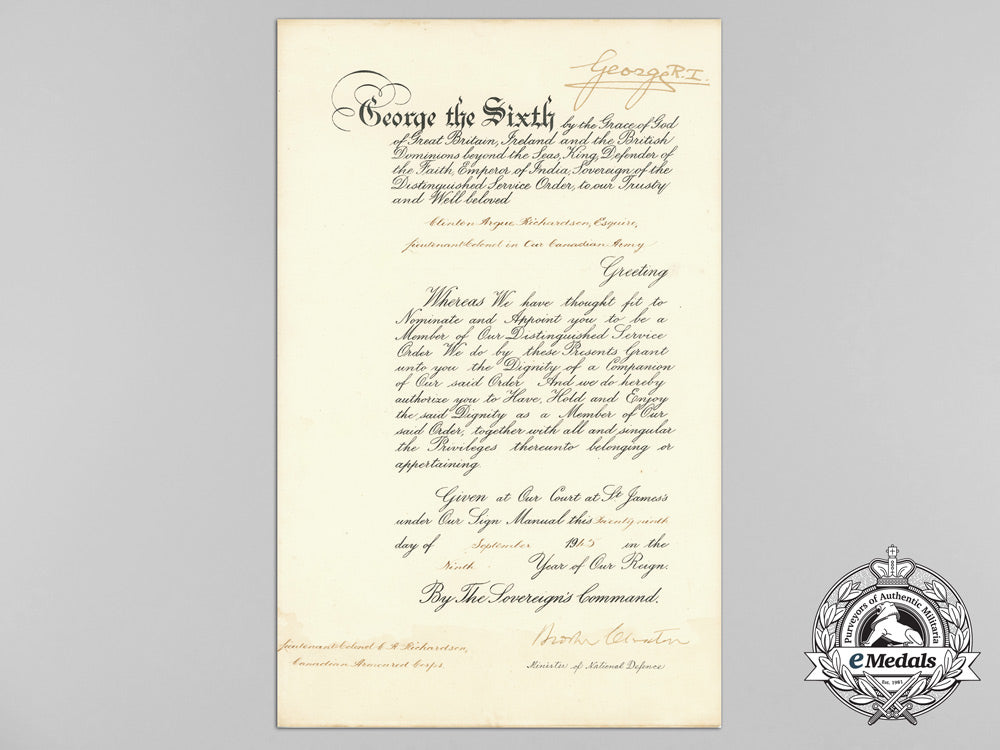 George R.I.
George the Sixth by the Grace of God
of Great Britain, Ireland and the British
Dominions beyond the Seas, King, Defender of
the Faith, Emperor of India, Sovereign of the
Distinguished Service Order, to our Trusty
and Well beloved
Clinton Argue Richardson, Esquire,
Lieutenant Colonel in Our Canadian Army
Greeting
Whereas We have thought fit to
Nominate and Appoint you to be a
Member of Our Distinguished Service
Order We do by these Presents Grant
unto you the Dignity of a Companion
of Our said Order And we do hereby
authorize you to Have, Hold and Enjoy
the said Dignity as a Member of Our
said Order, together with all and singular
the Privileges thereunto belonging or
appertaining.
Given at Our Court at St James's
under Our Sign Manual this Twenty ninth
day of September 1945 in the
Ninth Year of Our Reign.
By The Sovereign's Command.
Lieutenant Colonel C A Richardson,
Canadian Armoured Corps.
Minister of National Defence
Purveyors of Authentic Militaria
eMedals
Est. 1961